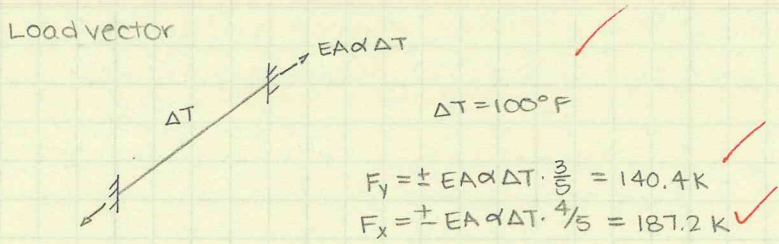 Load vector
EAαΔT
ΔT
ΔT = 100°F
Fy = ± EAαΔT · 3/5 = 140.4 K
Fx = ± EAαΔT · 4/5 = 187.2 K